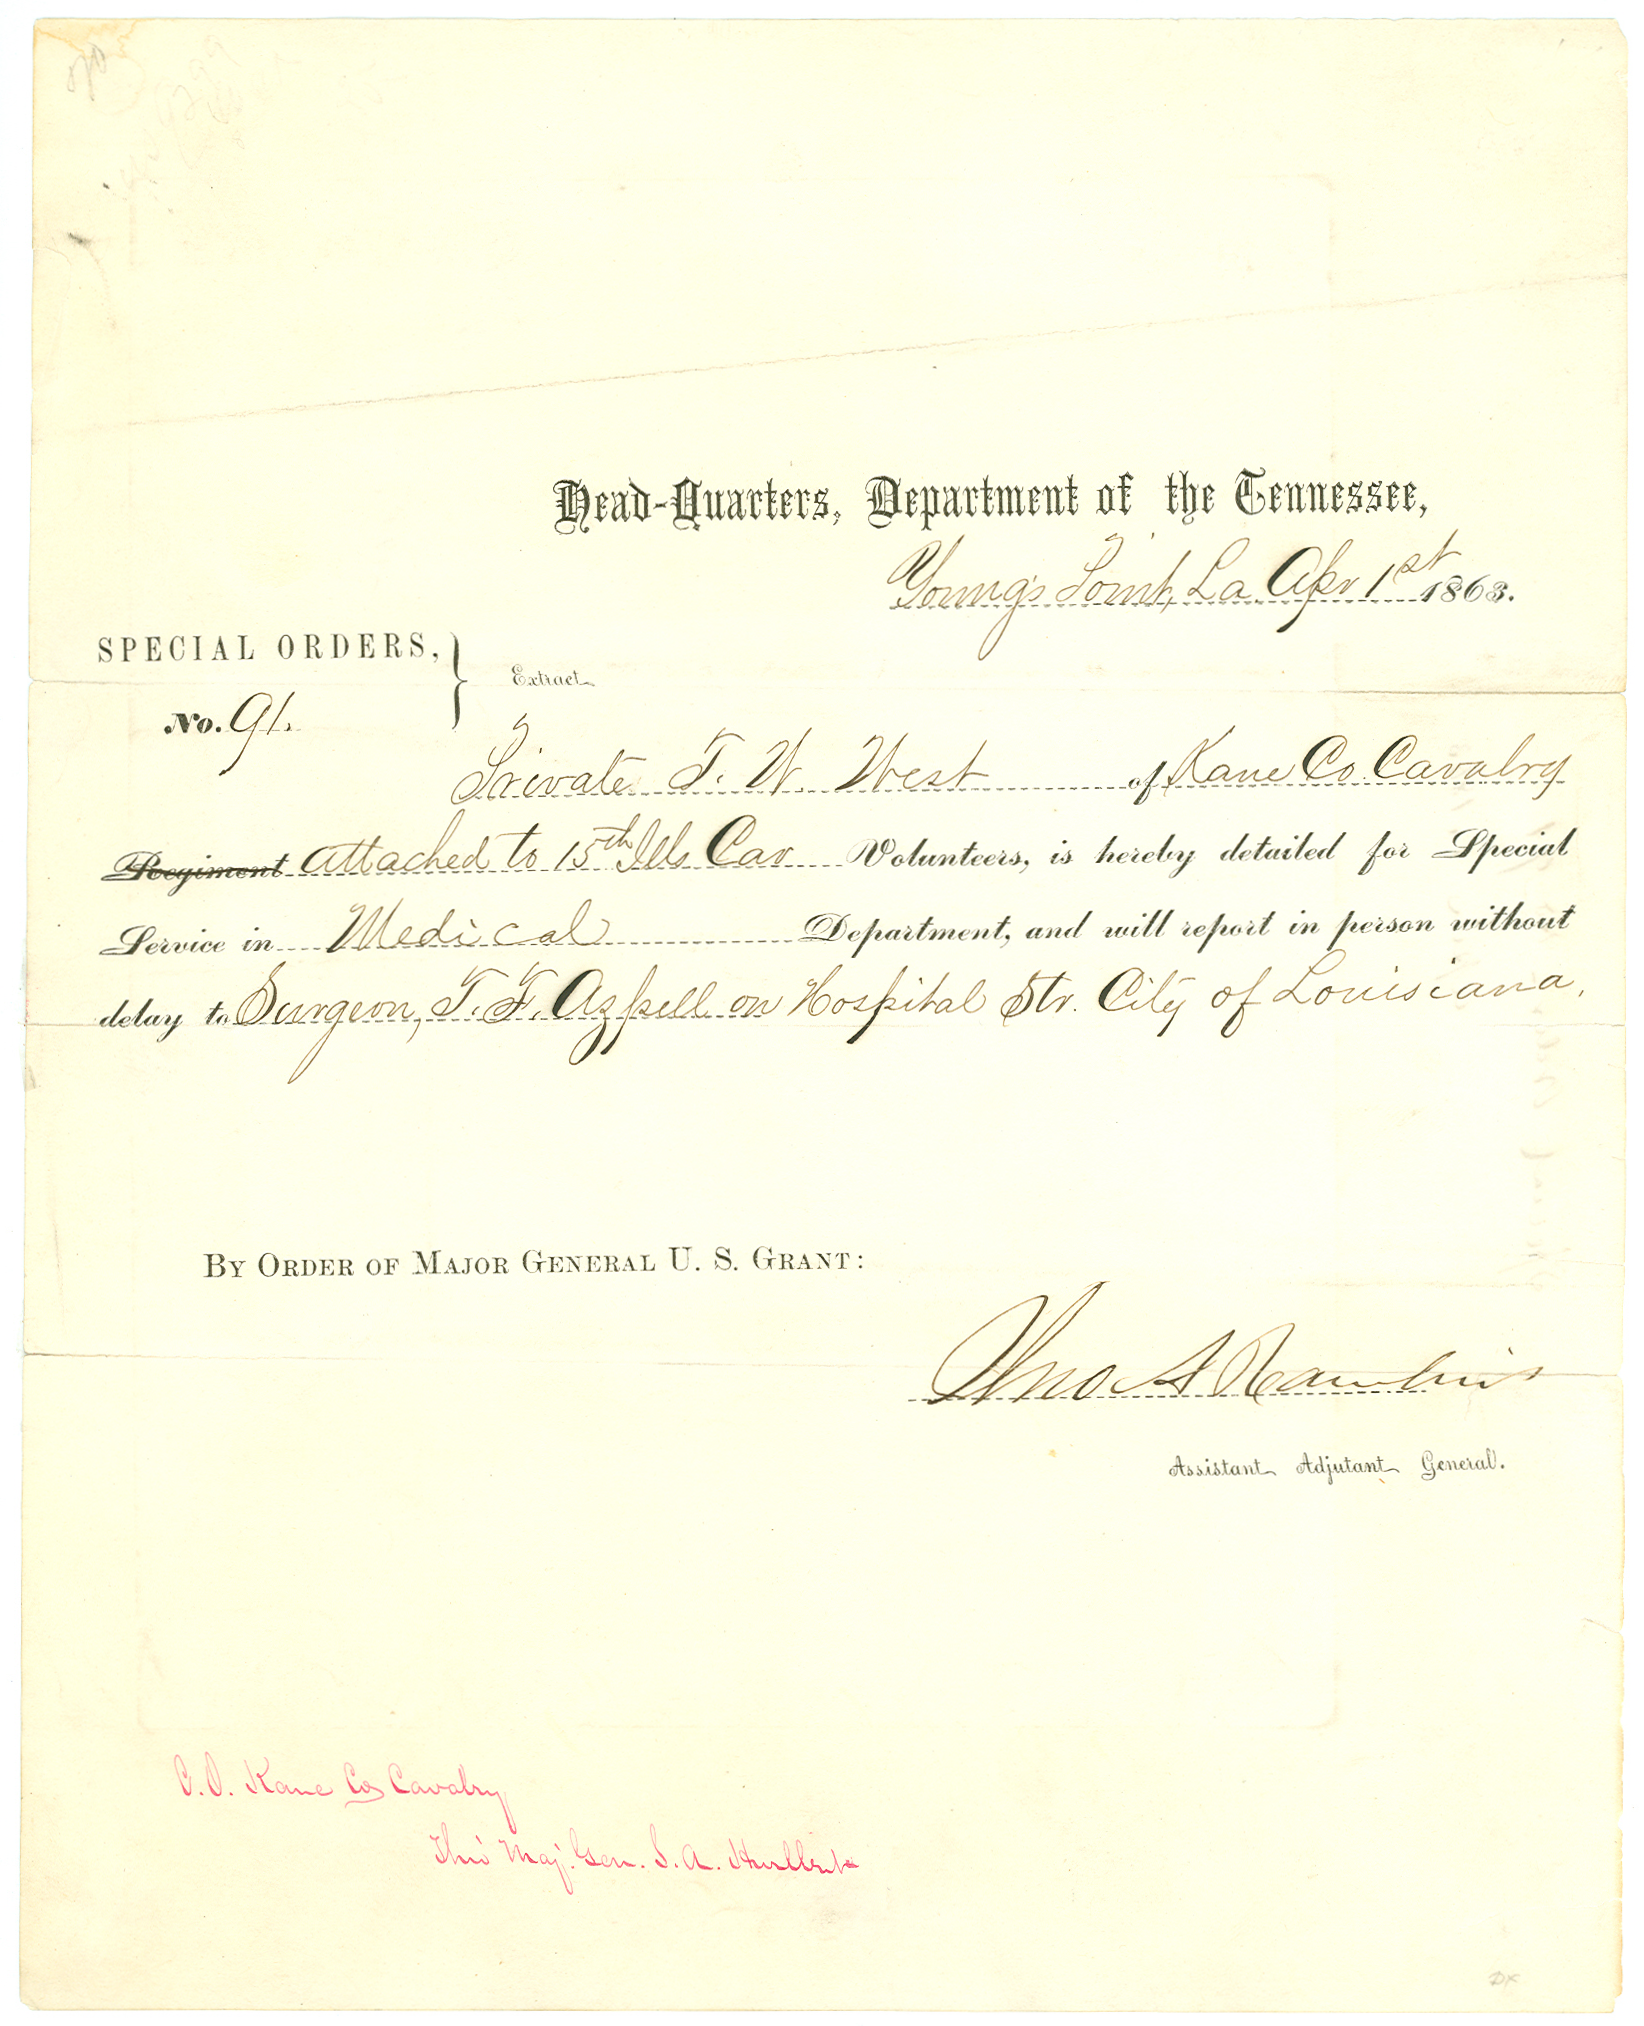 Head-Quarters, Department of the Tennessee,
Young's Point, La. Apr 1st 1863.
SPECIAL ORDERS,
Extract
No. 91.
Private T. W. West of Kane Co. Cavalry
Regiment attached to 15th Ills Cav Volunteers, is hereby detailed for Special
Service in Medical Department, and will report in person without
delay to Surgeon, T. F. Azpell on Hospital Str. City of Louisiana,
BY ORDER OF MAJOR GENERAL U. S. GRANT:
Jno A Rawlins
Assistant Adjutant General.
C.O. Kane Co Cavalry
Thro' Maj. Gen. S. A. Hurlbut
DX